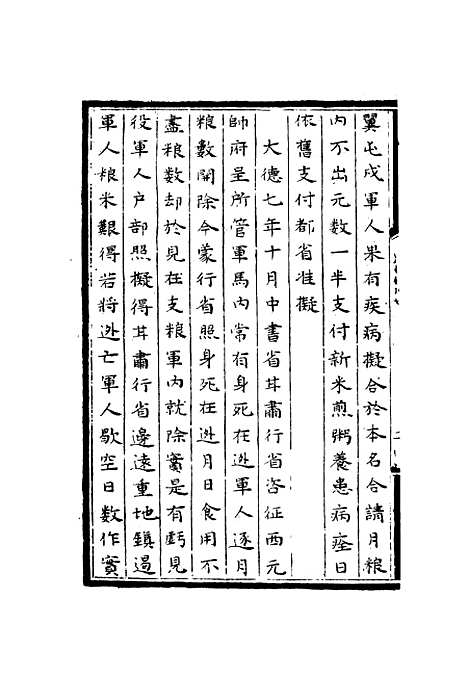 翼屯戍軍人果有疾病擬合於本名合請月粮
內不出元数一半支付新米煎粥養患病痊日
依舊支付都省准擬
大德七年十月中書省甘肅行省咨征西元
帥府呈所管軍馬內常有身死在迯軍人逐月
粮數開除今蒙行省照身死在迯月日食用不
盡粮数却於見在支粮軍內就除實是有虧見
役軍人户部照擬得甘肅行省邊遠重地鎮遏
軍人粮米艱得若將迯亡軍人歇空日数作實